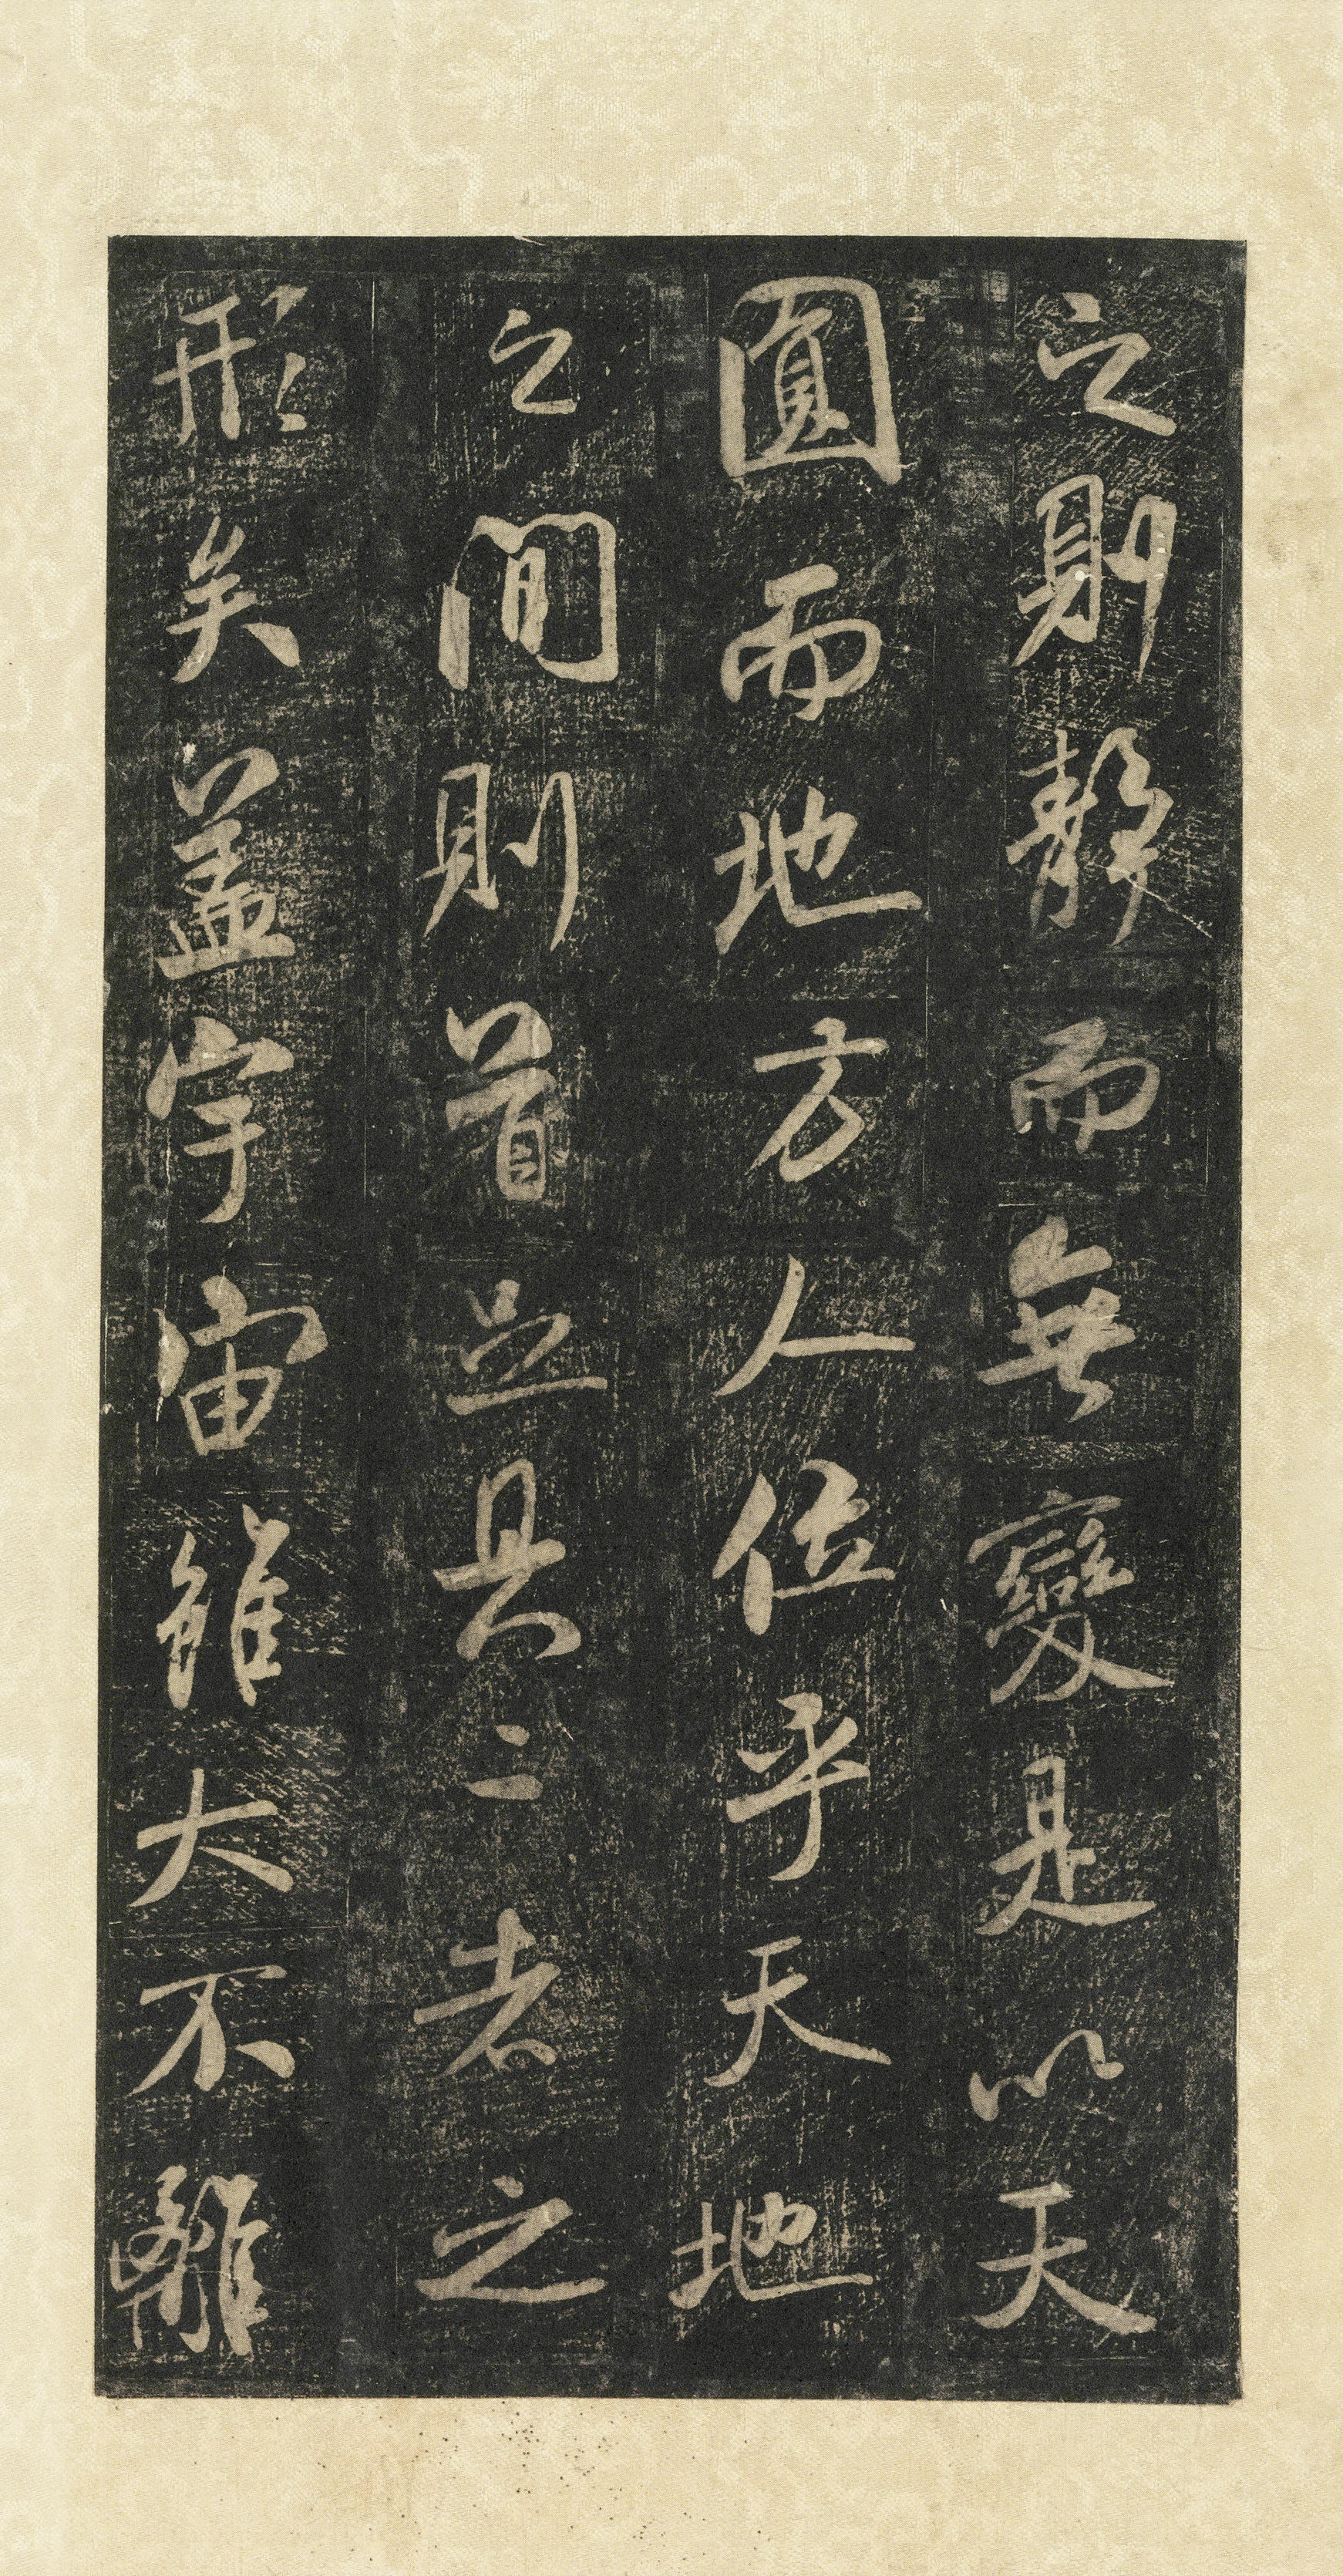 之則靜而無變是以天
圓而地方人位乎天地
之間則首具二者之
形矣盖宇宙雖大不離